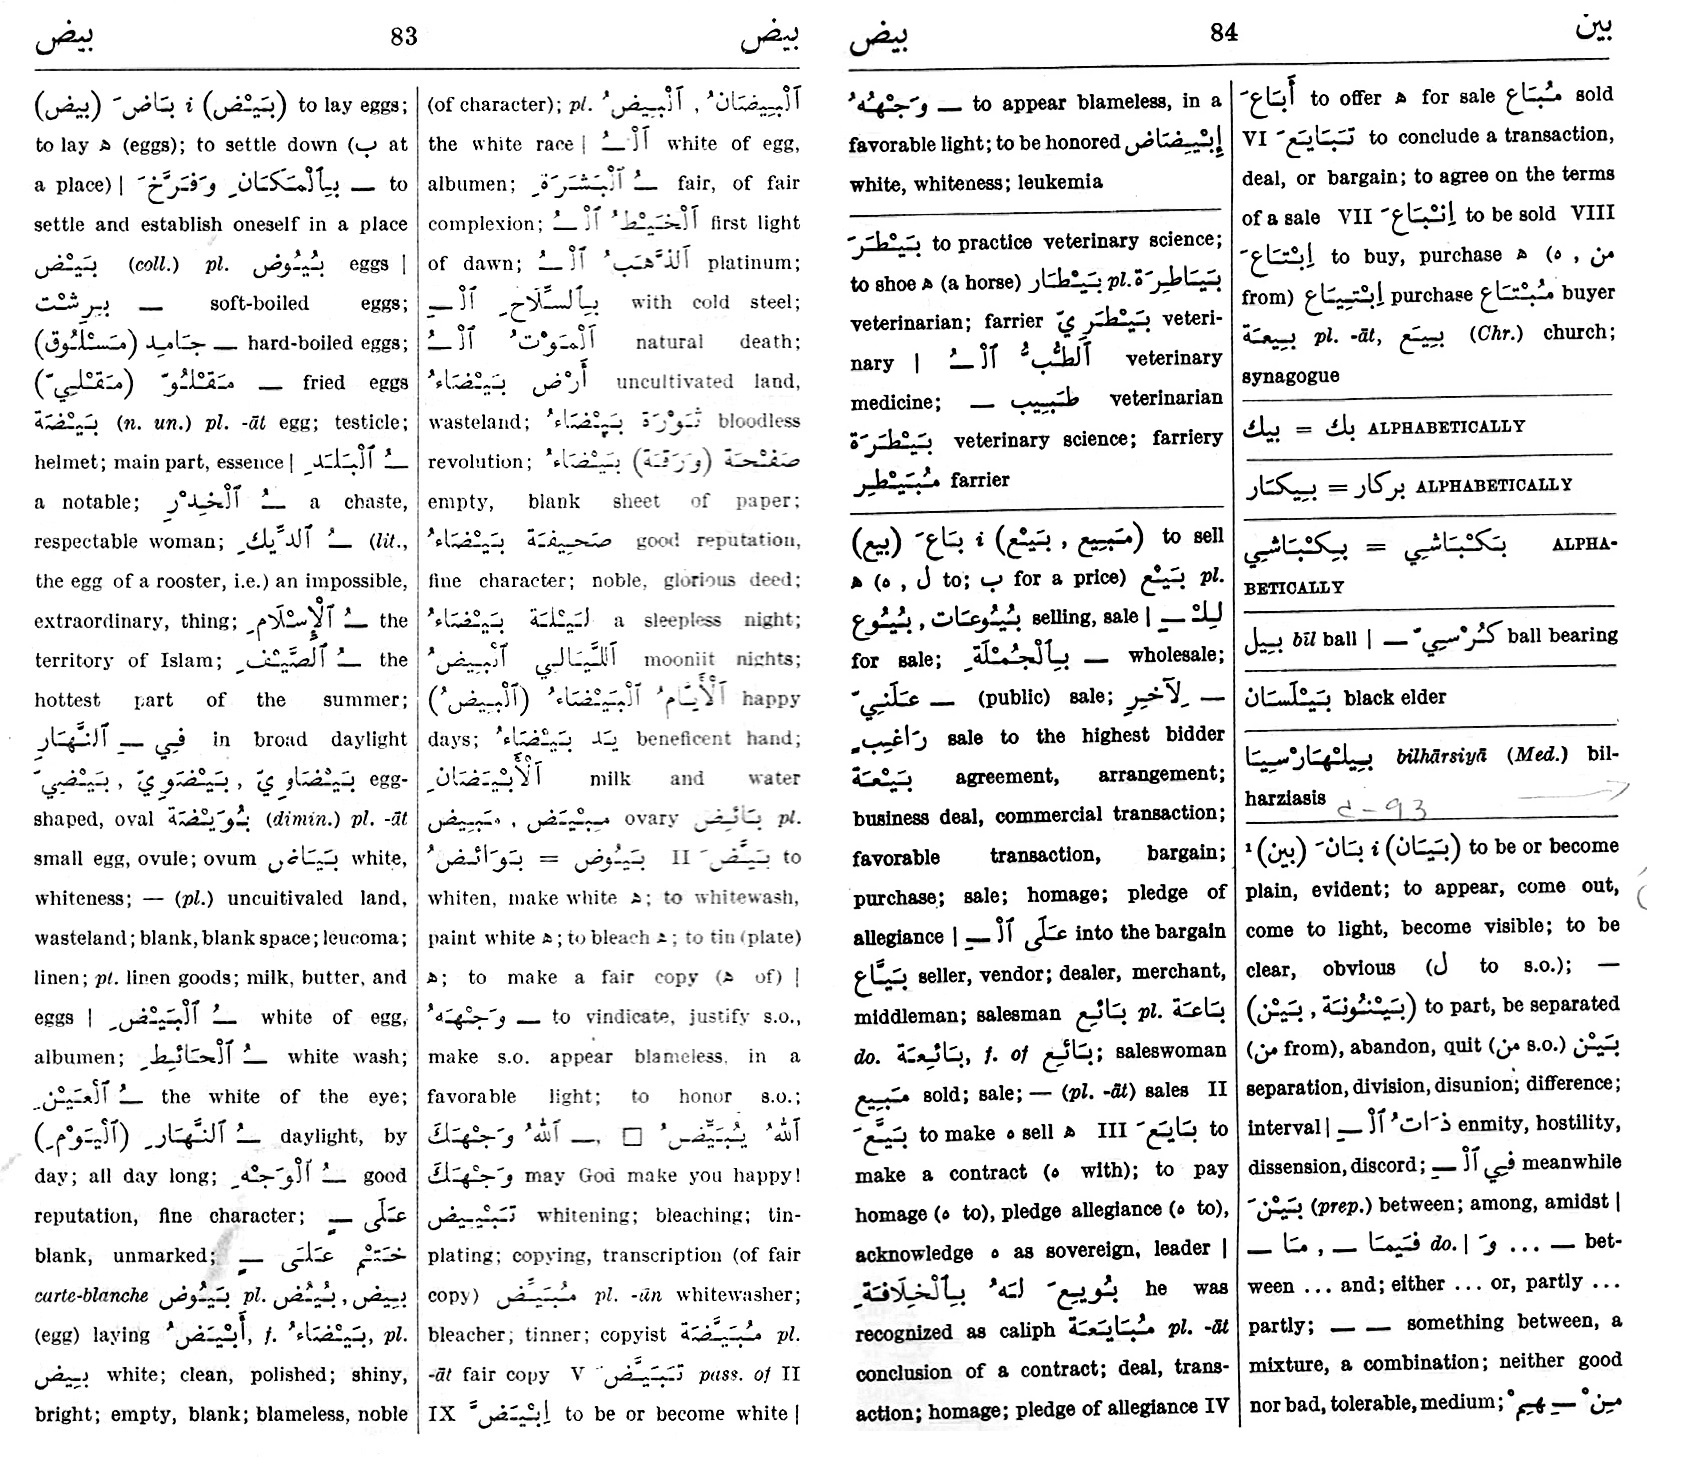 بيض 83 بيض
(بيض) بَاضَ i (بَيْض) to lay eggs;
to lay ه (eggs); to settle down (ب at
a place) | ― بِالْمَكَانِ وَفَرَّخَ to
settle and establish oneself in a place
بَيْض (coll.) pl. بُيُوض eggs |
― بِرِشْت soft-boiled eggs;
― جَامِد (مَسْلُوق) hard-boiled eggs;
― مَقْلُوّ (مَقْلِيّ) fried eggs
بَيْضَة (n. un.) pl. -āt egg; testicle;
helmet; main part, essence | ـُ ٱلْبَلَدِ
a notable; ـُ ٱلْخِدْرِ a chaste,
respectable woman; ـُ ٱلدِّيكِ (lit.,
the egg of a rooster, i.e.) an impossible,
extraordinary, thing; ـُ ٱلْإِسْلَامِ the
territory of Islam; ـُ ٱلصَّيْفِ the
hottest part of the summer;
فِي ـِ ٱلنَّهَارِ in broad daylight
بَيْضِيّ , بَيْضَوِيّ , بَيْضَاوِيّ egg-
shaped, oval بُوَيْضَة (dimin.) pl. -āt
small egg, ovule; ovum بَيَاض white,
whiteness; — (pl.) uncultivated land,
wasteland; blank, blank space; leucoma;
linen; pl. linen goods; milk, butter, and
eggs | ـُ ٱلْبَيْضِ white of egg,
albumen; ـُ ٱلْحَائِطِ white wash;
ـُ ٱلْعَيْنِ the white of the eye;
ـُ ٱلنَّهَارِ (ٱلْيَوْمِ) daylight, by
day; all day long; ـُ ٱلْوَجْهِ good
reputation, fine character; عَلَى ـٍ
blank, unmarked; خَتْم عَلَى ـٍ
carte-blanche بَيُوض pl. بُيُض, بِيض
(egg) laying أَبْيَضُ, f. بَيْضَاءُ, pl.
بِيض white; clean, polished; shiny,
bright; empty, blank; blameless, noble
(of character); pl. ٱلْبِيضُ , ٱلْبِيضَانُ
the white race | ٱلْـُ white of egg,
albumen; ـُ ٱلْبَشَرَةِ fair, of fair
complexion; ٱلْخَيْطُ ٱلْـُ first light
of dawn; ٱلذَّهَبُ ٱلْـُ platinum;
بِالسِّلَاحِ ٱلْـِ with cold steel;
ٱلْمَوْتُ ٱلْـُ natural death;
أَرْض بَيْضَاءُ uncultivated land,
wasteland; ثَوْرَة بَيْضَاءُ bloodless
revolution; صَفْحَة (وَرَقَة) بَيْضَاءُ
empty, blank sheet of paper;
صَحِيفَة بَيْضَاءُ good reputation,
fine character; noble, glorious deed;
لَيْلَة بَيْضَاءُ a sleepless night;
ٱللَّيَالِي ٱلْبِيضُ moonlit nights;
ٱلْأَيَّامُ ٱلْبَيْضَاءُ (ٱلْبِيضُ) happy
days; يَد بَيْضَاءُ beneficent hand;
ٱلْأَبْيَضَانِ milk and water
مَبِيض , مِبْيَض ovary بَائِض pl.
بَوَائِضُ = بَيُوض II بَيَّضَ to
whiten, make white ه; to whitewash,
paint white ه; to bleach ه; to tin (plate)
ه; to make a fair copy (ه of) |
― وَجْهَهُ to vindicate, justify s.o.,
make s.o. appear blameless, in a
favorable light; to honor s.o.;
ـ, ٱللهُ وَجْهَكَ □ ٱللهُ يُبَيِّضُ
وَجْهَكَ may God make you happy!
تَبْيِيض whitening; bleaching; tin-
plating; copying, transcription (of fair
copy) مُبَيِّض pl. -ūn whitewasher;
bleacher; tinner; copyist مُبَيَّضَة pl.
-āt fair copy V تَبَيَّضَ pass. of II
IX اِبْيَضَّ to be or become white |
بيض 84 بين
― وَجْهُهُ to appear blameless, in a
favorable light; to be honored اِبْيِضَاض
white, whiteness; leukemia
بَيْطَرَ to practice veterinary science;
to shoe ه (a horse) بَيْطَار pl. بَيَاطِرَة
veterinarian; farrier بَيْطَرِيّ veteri-
nary | ٱلطِّبُّ ٱلْـُ veterinary
medicine; طَبِيب ― veterinarian
بَيْطَرَة veterinary science; farriery
مُبَيْطِر farrier
(بيع) بَاعَ i (بَيْع , مَبِيع) to sell
ه (ه , ل to; ب for a price) بَيْع pl.
بُيُوع , بُيُوعَات selling, sale | لِلْـِ
for sale; ― بِالْجُمْلَةِ wholesale;
― عَلَنِيّ (public) sale; ― لِآخِرِ
رَاغِبٍ sale to the highest bidder
بَيْعَة agreement, arrangement;
business deal, commercial transaction;
favorable transaction, bargain;
purchase; sale; homage; pledge of
allegiance | عَلَى ٱلْـِ into the bargain
بَيَّاع seller, vendor; dealer, merchant,
middleman; salesman بَائِع pl. بَاعَة
do. بَائِعَة, f. of بَائِع; saleswoman
مَبِيع sold; sale; — (pl. -āt) sales II
بَيَّعَ to make ه sell ه III بَايَعَ to
make a contract (ه with); to pay
homage (ه to), pledge allegiance (ه to),
acknowledge ه as sovereign, leader |
بُويِعَ لَهُ بِالْخِلَافَةِ he was
recognized as caliph مُبَايَعَة pl. -āt
conclusion of a contract; deal, trans-
action; homage; pledge of allegiance IV
أَبَاعَ to offer ه for sale مُبَاع sold
VI تَبَايَعَ to conclude a transaction,
deal, or bargain; to agree on the terms
of a sale VII اِنْبَاعَ to be sold VIII
اِبْتَاعَ to buy, purchase ه (ه , من
from) اِبْتِيَاع purchase مُبْتَاع buyer
بِيعَة pl. -āt, بِيَع (Chr.) church;
synagogue
بيك = بك ALPHABETICALLY
بِيكَار = بركار ALPHABETICALLY
بِيكْبَاشِي = بَكْبَاشِي ALPHA-
BETICALLY
بِيل bīl ball | كُرْسِيّ ― ball bearing
بَيْلَسَان black elder
بِيلْهَارْسِيَا bilhārsiyā (Med.) bil-
harziasis
¹(بين) بَانَ i (بَيَان) to be or become
plain, evident; to appear, come out,
come to light, become visible; to be
clear, obvious (ل to s.o.); —
(بَيْن , بَيْنُونَة) to part, be separated
(من from), abandon, quit (من s.o.) بَيْن
separation, division, disunion; difference;
interval | ذَاتُ ٱلْـِ enmity, hostility,
dissension, discord; فِي ٱلْـِ meanwhile
بَيْنَ (prep.) between; among, amidst |
― مَا , ― فِيمَا do. | ― ... وَ ― bet-
ween ... and; either ... or, partly ...
partly; ― ― something between, a
mixture, a combination; neither good
nor bad, tolerable, medium; مِنْ ـِهِمْ